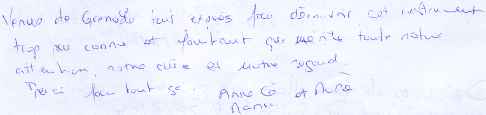 Venues de Grenoble tout exprès pour découvrir cet instrument
trop peu connu et pourtant qui mérite toute notre
attention, notre ouïe et notre regard.
Merci pour tout ça. Anne Cé et